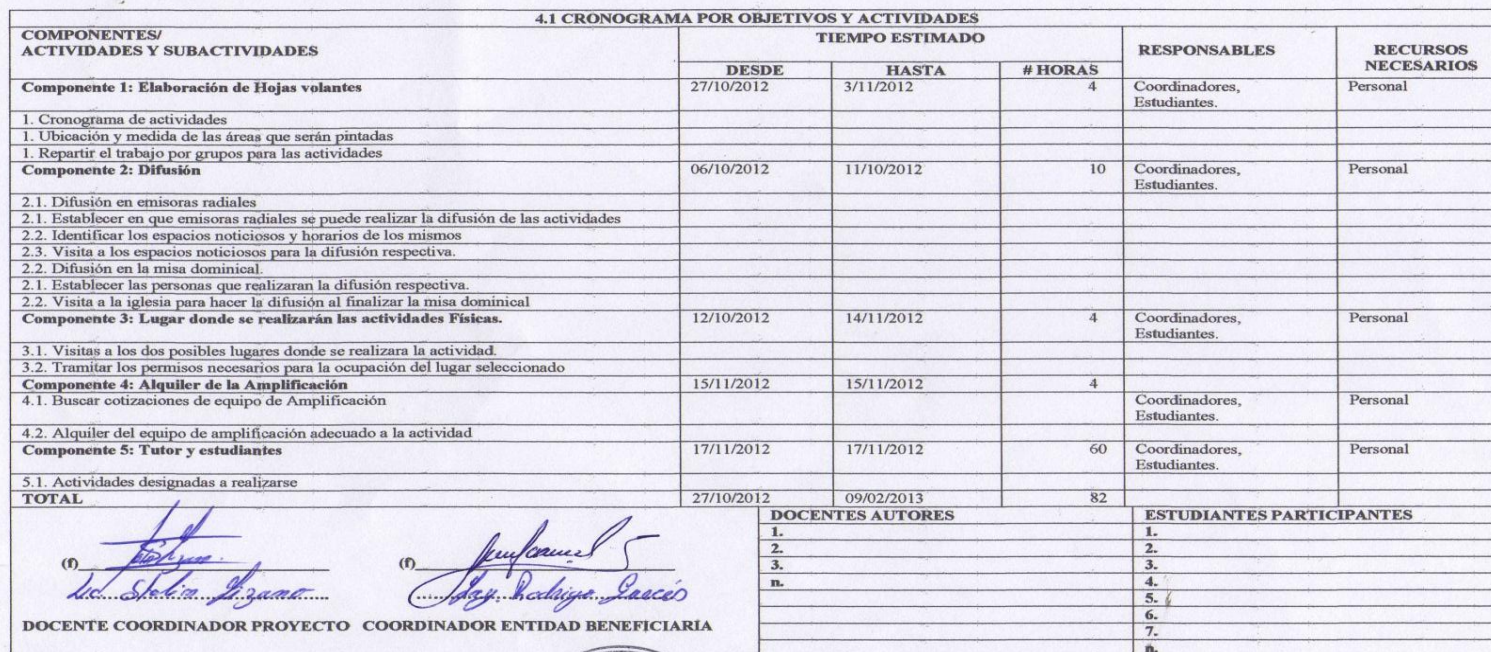 4.1 CRONOGRAMA POR OBJETIVOS Y ACTIVIDADES
COMPONENTES/
ACTIVIDADES Y SUBACTIVIDADES
TIEMPO ESTIMADO
RESPONSABLES
RECURSOS
NECESARIOS
DESDE HASTA # HORAS
Componente 1: Elaboración de Hojas volantes 27/10/2012 3/11/2012 4 Coordinadores, Personal
Estudiantes.
1. Cronograma de actividades
1. Ubicación y medida de las áreas que serán pintadas
1. Repartir el trabajo por grupos para las actividades
Componente 2: Difusión 06/10/2012 11/10/2012 10 Coordinadores, Personal
Estudiantes.
2.1. Difusión en emisoras radiales
2.1. Establecer en que emisoras radiales se puede realizar la difusión de las actividades
2.2. Identificar los espacios noticiosos y horarios de los mismos
2.3. Visita a los espacios noticiosos para la difusión respectiva.
2.2. Difusión en la misa dominical.
2.1. Establecer las personas que realizaran la difusión respectiva.
2.2. Visita a la iglesia para hacer la difusión al finalizar la misa dominical
Componente 3: Lugar donde se realizarán las actividades Físicas. 12/10/2012 14/11/2012 4 Coordinadores, Personal
Estudiantes.
3.1. Visitas a los dos posibles lugares donde se realizara la actividad.
3.2. Tramitar los permisos necesarios para la ocupación del lugar seleccionado
Componente 4: Alquiler de la Amplificación 15/11/2012 15/11/2012 4
4.1. Buscar cotizaciones de equipo de Amplificación Coordinadores, Personal
Estudiantes.
4.2. Alquiler del equipo de amplificación adecuado a la actividad
Componente 5: Tutor y estudiantes 17/11/2012 17/11/2012 60 Coordinadores, Personal
Estudiantes.
5.1. Actividades designadas a realizarse
TOTAL 27/10/2012 09/02/2013 82
DOCENTES AUTORES
1.
2.
3.
n.
ESTUDIANTES PARTICIPANTES
1.
2.
3.
4.
5.
6.
7.
n.
(f) (f)
Lcd. Stalin Lizano Ing. Rodrigo Garcés
DOCENTE COORDINADOR PROYECTO COORDINADOR ENTIDAD BENEFICIARÍA